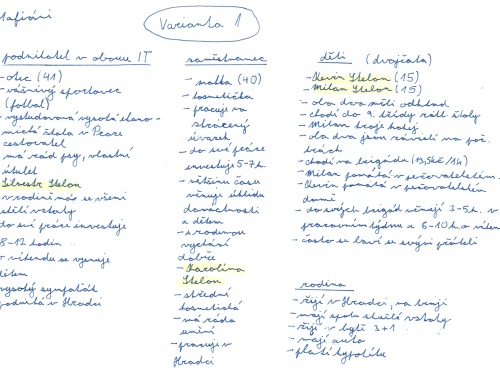 Varianta 1
podnikatel v oboru IT
- otec (41)
- vášnivý sportovec
(fotbal)
- vystudovaná vysoká ekono-
mická škola v Praze
cestovatel
- má rád psy, vlastní
útulek
Silvestr Stelon
v rodině má se všemi
vztahy
do své práce investuje
8-12 hodin
o víkendu se věnuje
dětem
vysoký
podniká v Hradci
zaměstnanec
- matka (40)
- kosmetička
- pracuje na
zkrácený
úvazek
- do své práce
investuje 5-7 h.
- většinu času
věnuje úklidu
domácnosti
a dětem
- s rodinou
vychází
dobře
- Karolína
Stelon
- střední
kosmetická
- má ráda
umění
- pracuje v
Hradci
děti (dvojčata)
- Kevin Stelon (15)
- Milan Stelon (15)
- oba dva měli odklad
- chodí do 9. třídy zákl. školy
- Milan hraje hokej
- oba dva jsou závislí na poč.
hrách
- chodí na brigádu
- Milan pomáhá v pečovatelském
- Kevin pomáhá v pečovatelském
domě
- do svých brigád věnují 3-5 h. v
pracovním týdnu a 6-10 h. o víken
- často se baví se svými přáteli
rodina
- žijí v Hradci, na kraji
- mají spolu skvělé vztahy
- žijí v bytě 3+1
- mají auto
- platí hypotéku